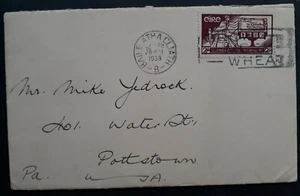 BAILE ÁTHA CLIATH
1939
B
éire
WHEA
Mr. Mike Jedrock.
401. Water St.
Pottstown
Pa. U.S.A.